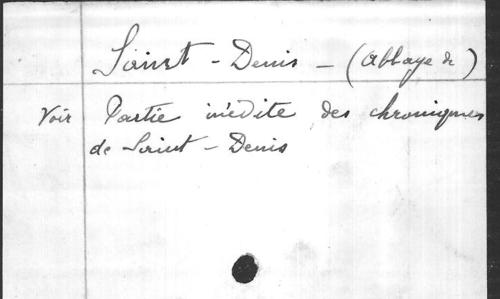 Saint - Denis - (Abbaye de)
Voir Partie inédite des chroniques
de Saint - Denis